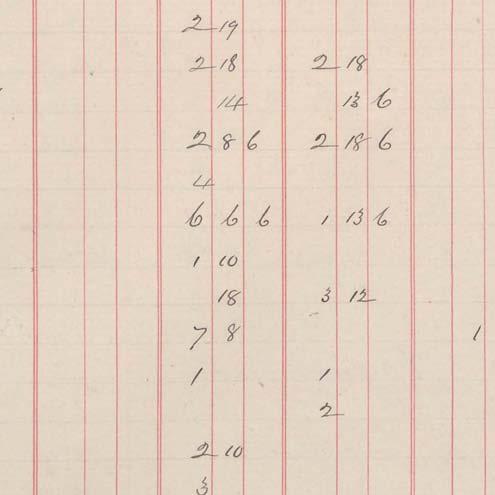 2 19
2 18 2 18
14 13 6
2 8 6 2 18 6
4
6 6 6 1 13 6
1 10
18 3 12
7 8 1
1 1
2
2 10
3